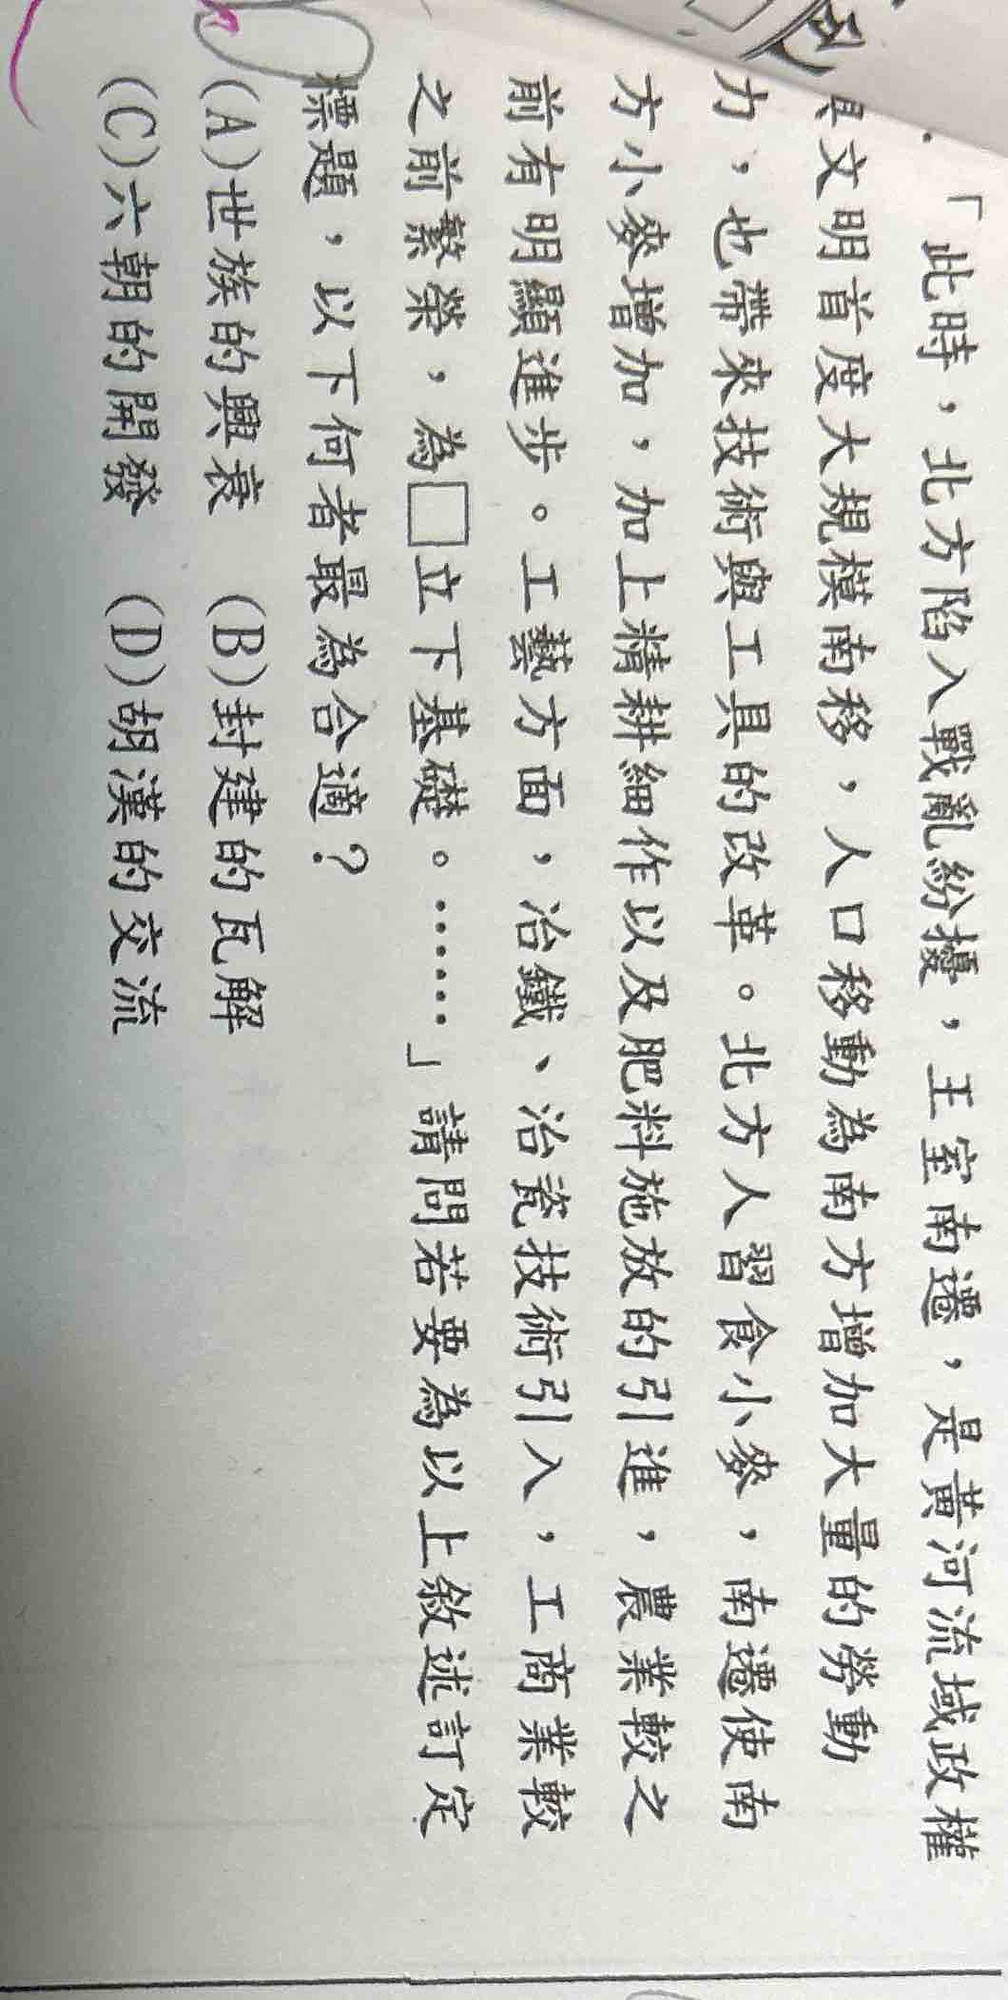 「此時，北方陷入戰亂紛擾，王室南遷，是黃河流域政權
與文明首度大規模南移，人口移動為南方增加大量的勞動
力，也帶來技術與工具的改革。北方人習食小麥，南遷使南
方小麥增加，加上精耕細作以及肥料施放的引進，農業較之
前有明顯進步。工藝方面，冶鐵、治瓷技術引入，工商業較
之前繁榮，為□立下基礎。……」請問若要為以上敘述訂定
標題，以下何者最為合適？
(A)世族的興衰 (B)封建的瓦解
(C)六朝的開發 (D)胡漢的交流